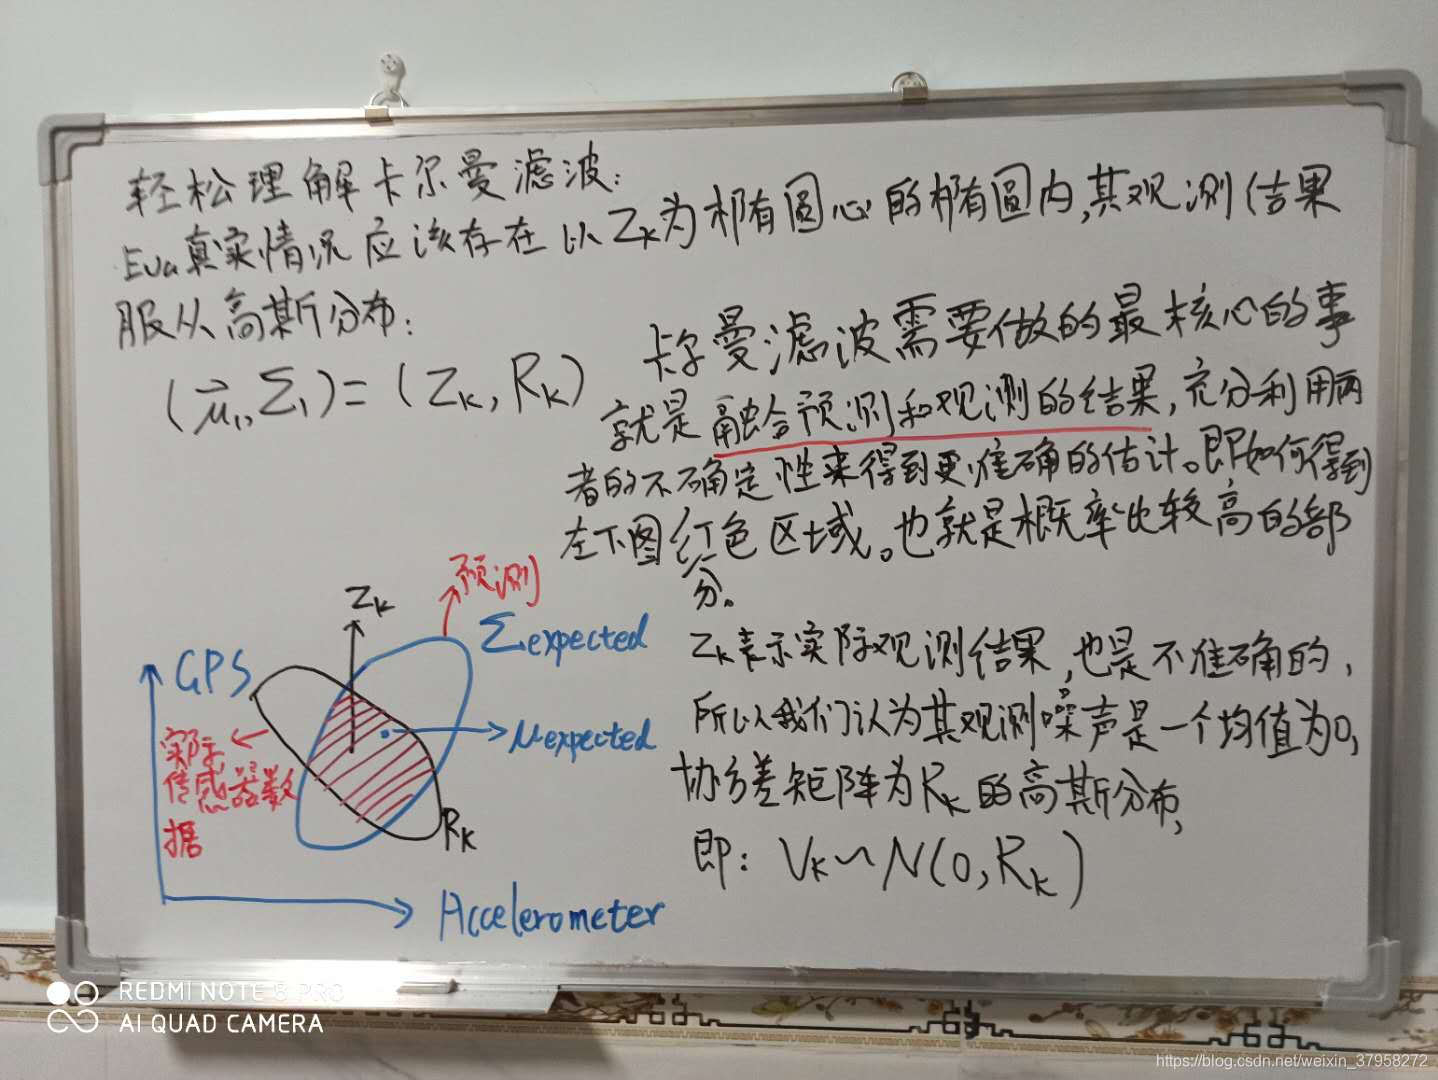 轻松理解卡尔曼滤波:
Eva真实情况应该存在以Zk为椭圆心的椭圆内,其观测结果
服从高斯分布:
(μ⃗₁,Σ₁)=(Zk,Rk)
卡尔曼滤波需要做的最核心的事
就是融合预测和观测的结果,充分利用两
者的不确定性来得到更准确的估计。即如何得到
左下图红色区域。也就是概率比较高的部
分。
Zk表示实际观测结果,也是不准确的,
所以我们认为其观测噪声是一个均值为0,
协方差矩阵为Rk的高斯分布,
即: Vk~N(0,Rk)
Zk
预测
Σexpected
GPS
μexpected
实际
传感器数
据
Rk
Accelerometer
REDMI NOTE 8 PRO
AI QUAD CAMERA
https://blog.csdn.net/weixin_37958272